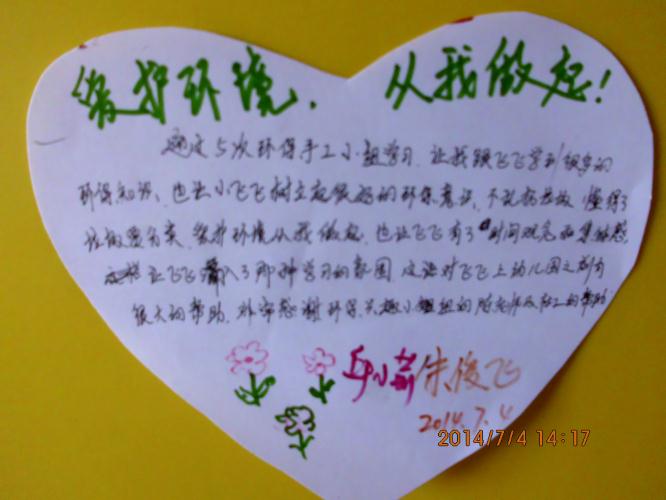 爱护环境，从我做起！
通过5次环保手工小组学习，让我跟飞飞学到很多的
环保知识，也让小飞飞树立起很好的环保意识，不乱扔垃圾，懂得了
垃圾要分类，爱护环境从我做起，也让飞飞有了时间观念和集体感，
让飞飞融入了那种学习的氛围，这法对飞飞上幼儿园之前有
很大的帮助，非常感谢环保兴趣小组的陈老师及社工的帮助
邱小莉 朱俊飞
2014.7.4
2014/7/4 14:17